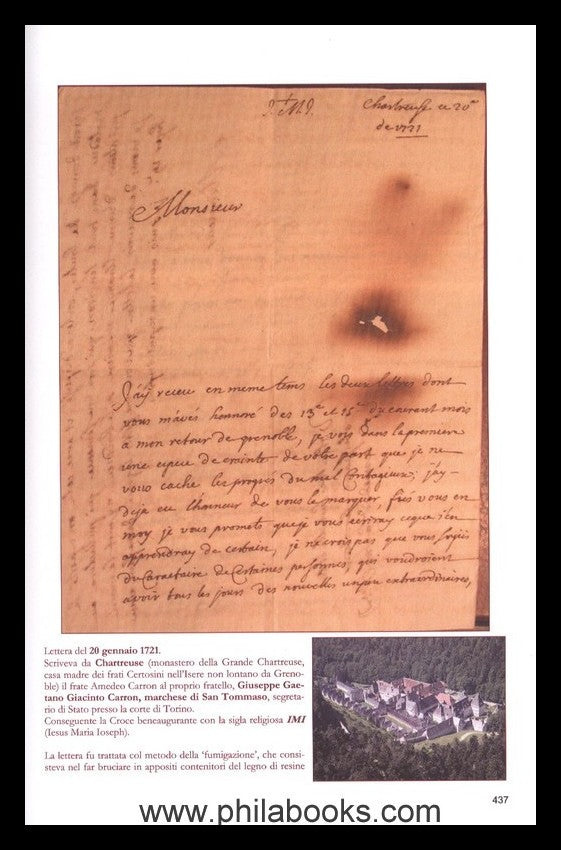 J.†M.J.
Chartreuse ce 20e
de 1721
Monsieur
J'ay receu en meme tems les deux lettres dont
vous m'avés honnoré des 13e et 15e du courant mois
a mon retour de grenoble, je vois dans la premiere
une espece de crainte de votre part que je ne
vous cache les progrés du mal Contagieux; j'ay
deja eu l'honneur de vous le marquer, fiés vous en
moy je vous promets que je vous ecriray ce que j'en
apprendray de certain, je ne crois pas que vous soyiés
du Caractaire de Certaines personnes, qui voudroient
avoir tous les jours des nouvelles un peu extraordinaires,
Lettera del 20 gennaio 1721.
Scriveva da Chartreuse (monastero della Grande Chartreuse,
casa madre dei frati Certosini nell'Isere non lontano da Greno-
ble) il frate Amedeo Carron al proprio fratello, Giuseppe Gae-
tano Giacinto Carron, marchese di San Tommaso, segreta-
rio di Stato presso la corte di Torino.
Conseguente la Croce beneaugurante con la sigla religiosa IMI
(Iesus Maria Ioseph).
La lettera fu trattata col metodo della 'fumigazione', che consi-
steva nel far bruciare in appositi contenitori del legno di resine
437
www.philabooks.com